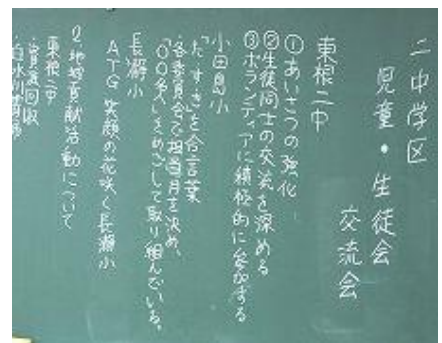 二中学区
児童・生徒会
交流会
東根二中
①あいさつの強化
②生徒同士の交流を深める
③ボランティアに積極的に参加する
小田島小
「たすき」を合言葉
・各委員会で担当月を決め、
「〇〇名人」をめざして取り組んでいる。
長瀞小
ATG 笑顔の花咲く長瀞小
2地域貢献活動について
東根二中
・資源回収